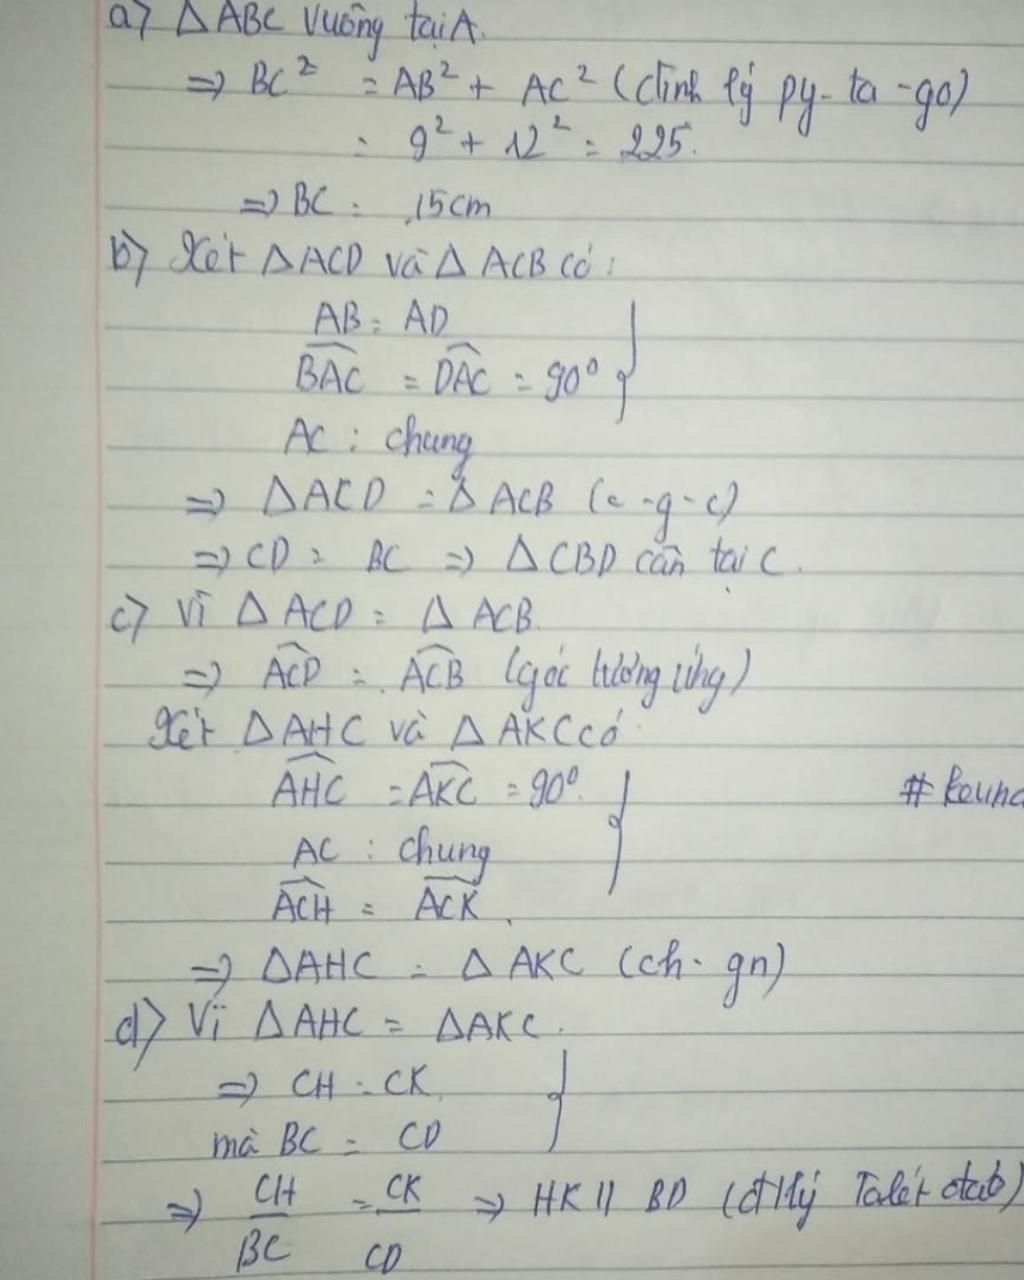 a) △ABC vuông tại A.
⇒ BC² = AB² + AC² (định lý py-ta-go)
= 9² + 12² = 225.
⇒ BC = 15cm
b) Xét △ACD và △ACB có:
AB = AD
BAC = DAC = 90°
AC : chung
⇒ △ACD = △ACB (c-g-c)
⇒ CD = BC ⇒ △CBD cân tại C.
c) Vì △ACD = △ACB.
⇒ ACD = ACB (góc tương ứng)
Xét △AHC và △AKC có
AHC = AKC = 90°.
AC : chung
ACH = ACK.
⇒ △AHC = △AKC (ch-gn)
d) Vì △AHC = △AKC.
⇒ CH = CK
mà BC = CD
⇒ CH/BC = CK/CD ⇒ HK // BD (đ/lý Talét đảo)